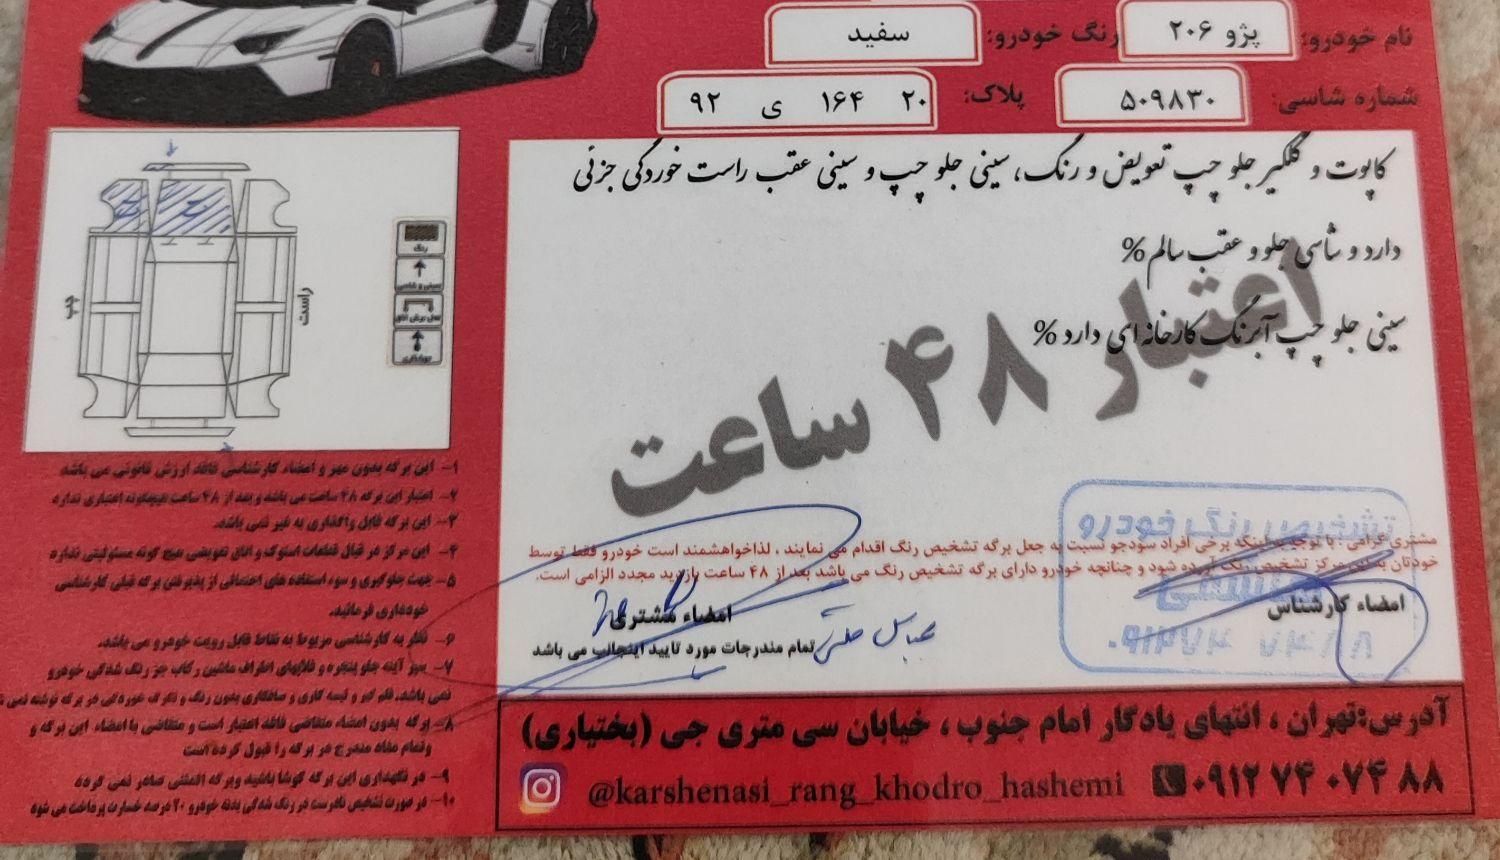 نام خودرو: پژو ۲۰۶ رنگ خودرو: سفید
شماره شاسی: ۵۰۹۸۳۰ پلاک: ۲۰ ۱۶۴ ی ۹۲
کاپوت و گلگیر جلو چپ تعویض و رنگ، سینی جلو چپ و سینی عقب راست خوردگی جزئی
دارد و شاسی جلو و عقب سالم%
سینی جلو چپ آبرنگ کارخانه ای دارد %
اعتبار ۴۸ ساعت
راست
چپ
رنگ
سینی و شاسی
۱- این برگه بدون مهر و امضاء کارشناسی فاقد ارزش قانونی می باشد
۲- اعتبار این برگه ۴۸ ساعت می باشد و بعد از ۴۸ ساعت هیچگونه اعتباری ندارد
۳- این برگه قابل واگذاری به غیر نمی باشد.
۴- این مرکز در قبال قطعات استوک و اتاق تعویضی هیچ گونه مسئولیتی ندارد
۵- جهت جلوگیری و سوء استفاده های احتمالی از پذیرفتن برگه قبلی کارشناسی
خودداری فرمائید.
۶- نظر به کارشناسی مربوط به نقاط قابل رویت خودرو می باشد.
۸- برگه بدون امضاء متقاضی فاقد اعتبار است و متقاضی با امضاء این برگه و
وتمام مفاد مندرج در برگه را قبول کرده است
۹- در نگهداری این برگه کوشا باشید وبرگه المثنی صادر نمی گردد
۱۰- در صورت تشخیص نادرست در رنگ شدگی بدنه خودرو ۲۰ درصد خسارت پرداخت می شود
تشخیص رنگ خودرو
هاشمی
مشتری گرامی ، با توجه به اینکه برخی افراد سودجو نسبت به جعل برگه تشخیص رنگ اقدام می نمایند ، لذاخواهشمند است خودرو فقط توسط
خودتان به این مرکز تشخیص رنگ آورده شود و چنانچه خودرو دارای برگه تشخیص رنگ می باشد بعد از ۴۸ ساعت بازدید مجدد الزامی است.
امضاء کارشناس
امضاء مشتری
تمام مندرجات مورد تایید اینجانب می باشد
آدرس:تهران ، انتهای یادگار امام جنوب ، خیابان سی متری جی (بختیاری)
@karshenasi_rang_khodro_hashemi ۰۹۱۲ ۷۴ ۰۷۴ ۸۸